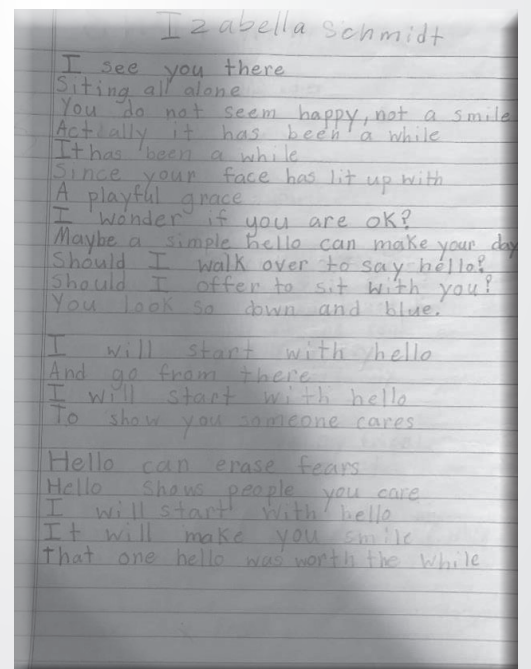 Izabella Schmidt
I see you there
Siting all alone
You do not seem happy, not a smile
Actually it has been a while
It has been a while
Since your face has lit up with
A playful grace
I wonder if you are OK?
Maybe a simple hello can make your day
Should I walk over to say hello?
Should I offer to sit with you?
You look so down and blue.
I will start with hello
And go from there
I will start with hello
To show you someone cares
Hello can erase fears
Hello shows people you care
I will start with hello
It will make you smile
that one hello was worth the while